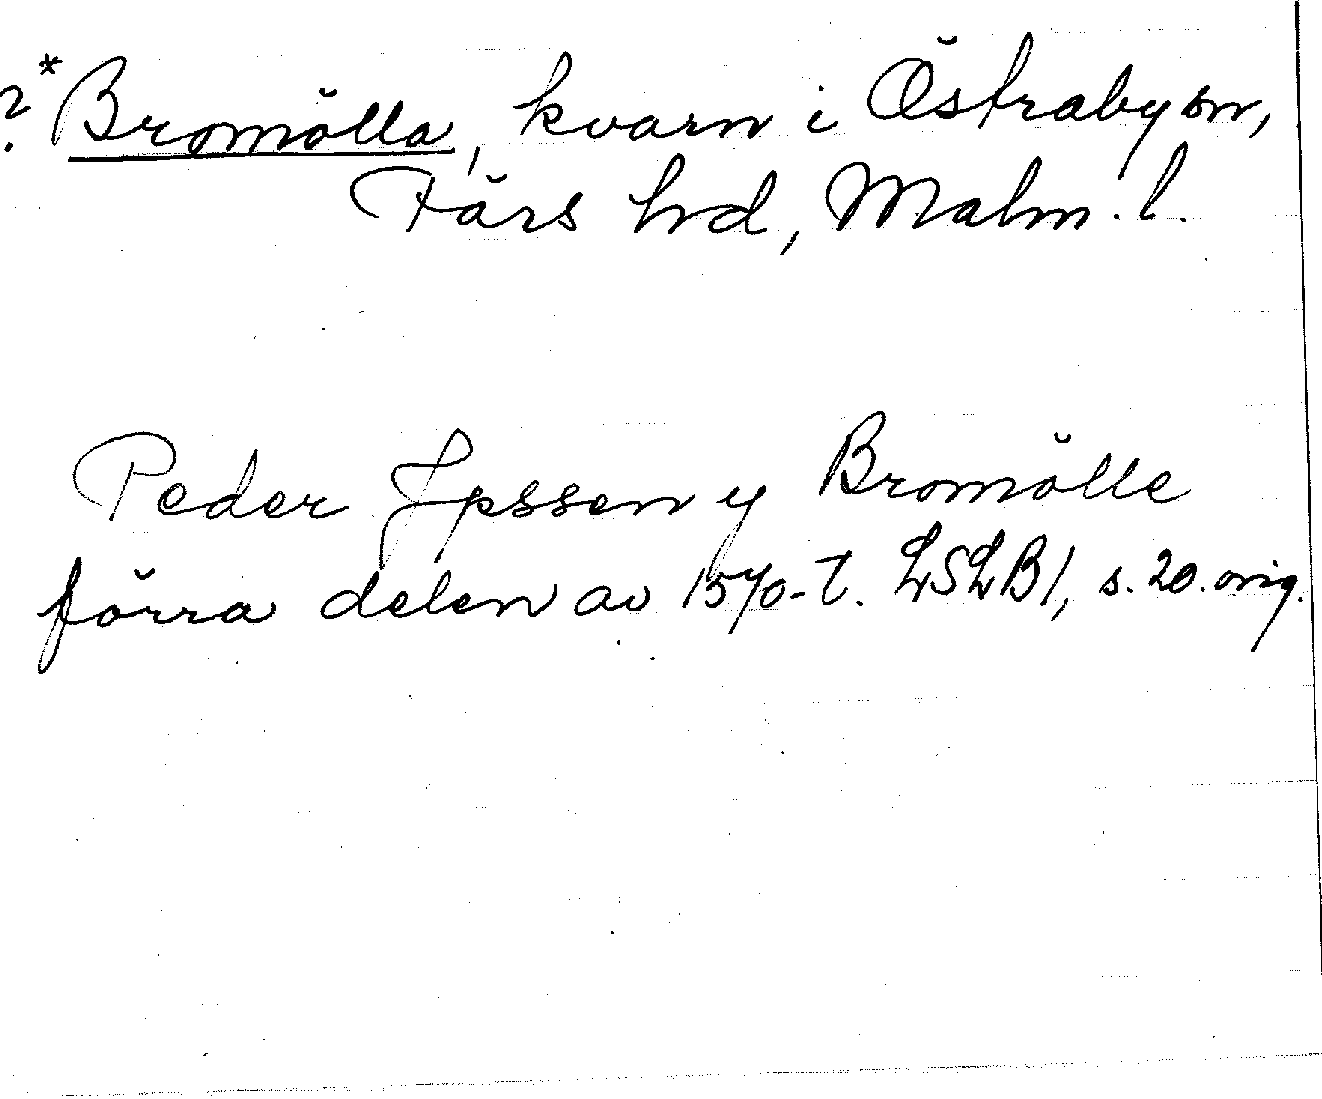 ?*Bromölla, kvarn i Östraby sn,
Färs hd, Malm. l.
Peder Jpssen y Bromölle
förra delen av 1570-t. LSLB1, s. 20. orig.